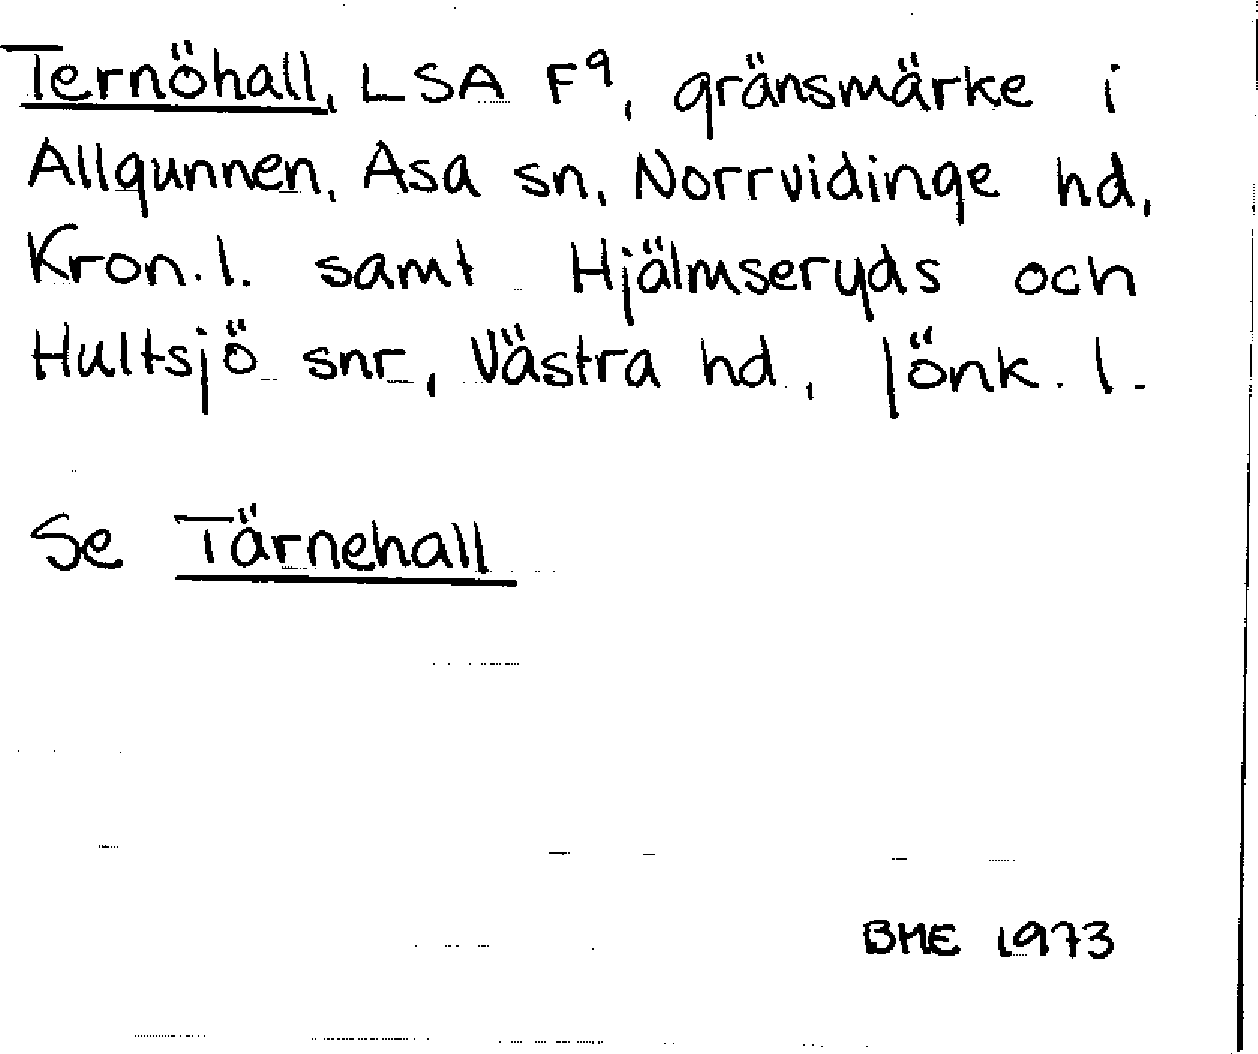 Ternöhall, LSA F⁹, gränsmärke i
Allgunnen, Asa sn, Norrvidinge hd,
Kron. l. samt Hjälmseryds och
Hultsjö snr, Västra hd, Jönk. l.
Se Tärnehall
BME 1973